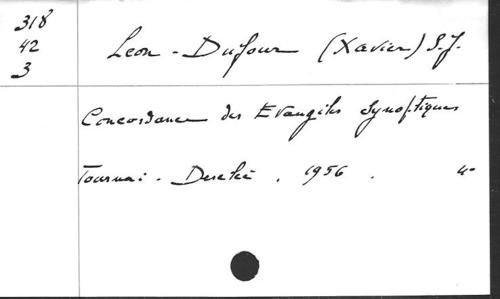 318
42
3
Leon - Dufour (Xavier) S.J.
Concordance des Evangiles Synoptiques
Tournai - Desclée . 1956 . 4°